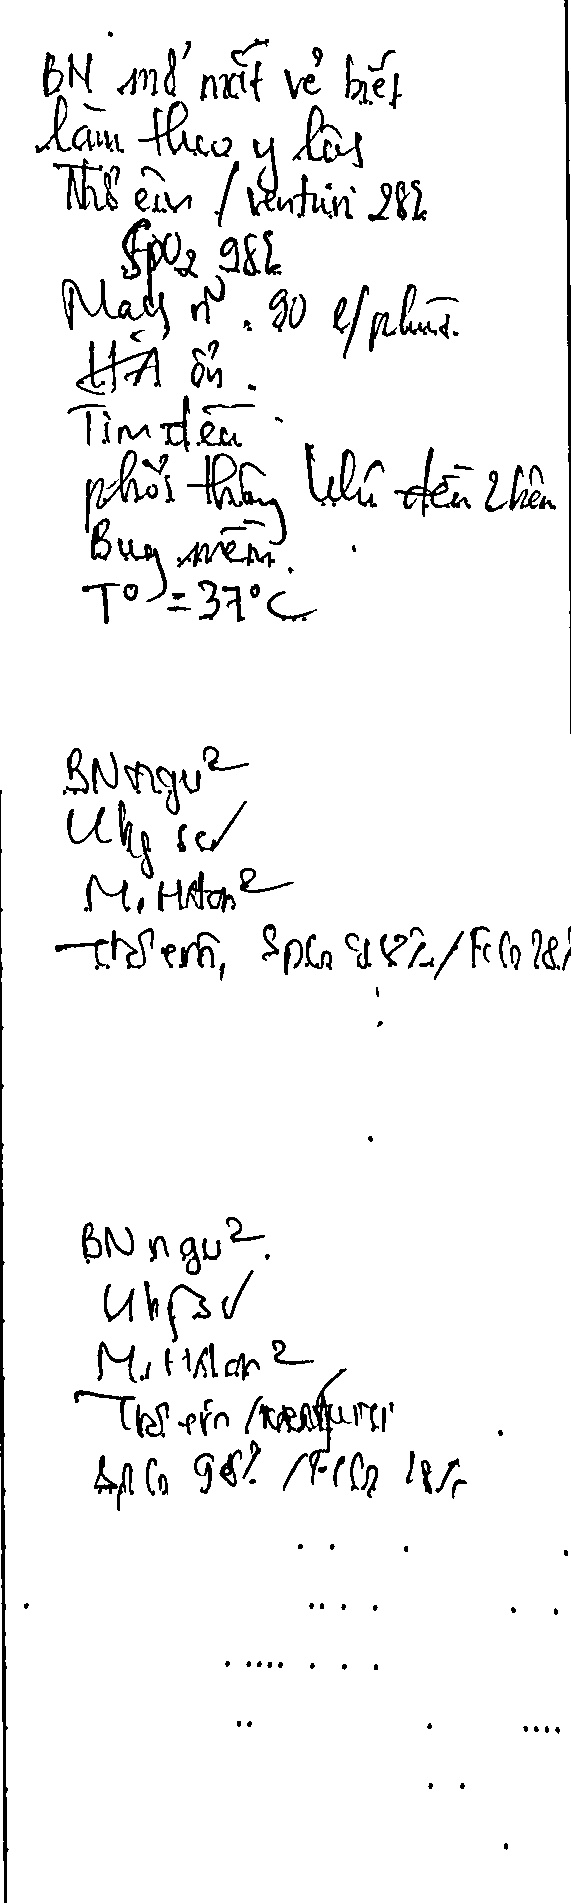 BN mở mắt vẻ biết
làm theo y lệnh
Thở êm / venturi 28%
SpO2 98%
Mạch rõ. 90 l/phút.
HA ổn.
Tim đều
phổi thông khí đều 2 bên
Bụng mềm.
T° = 37°C
BN ngủ
M, HA ổn
Thở êm, SpO2 98% / FiO2 28%
BN ngủ.
M, HA ổn
Thở êm / venturi
SpO2 98% / FiO2 28%